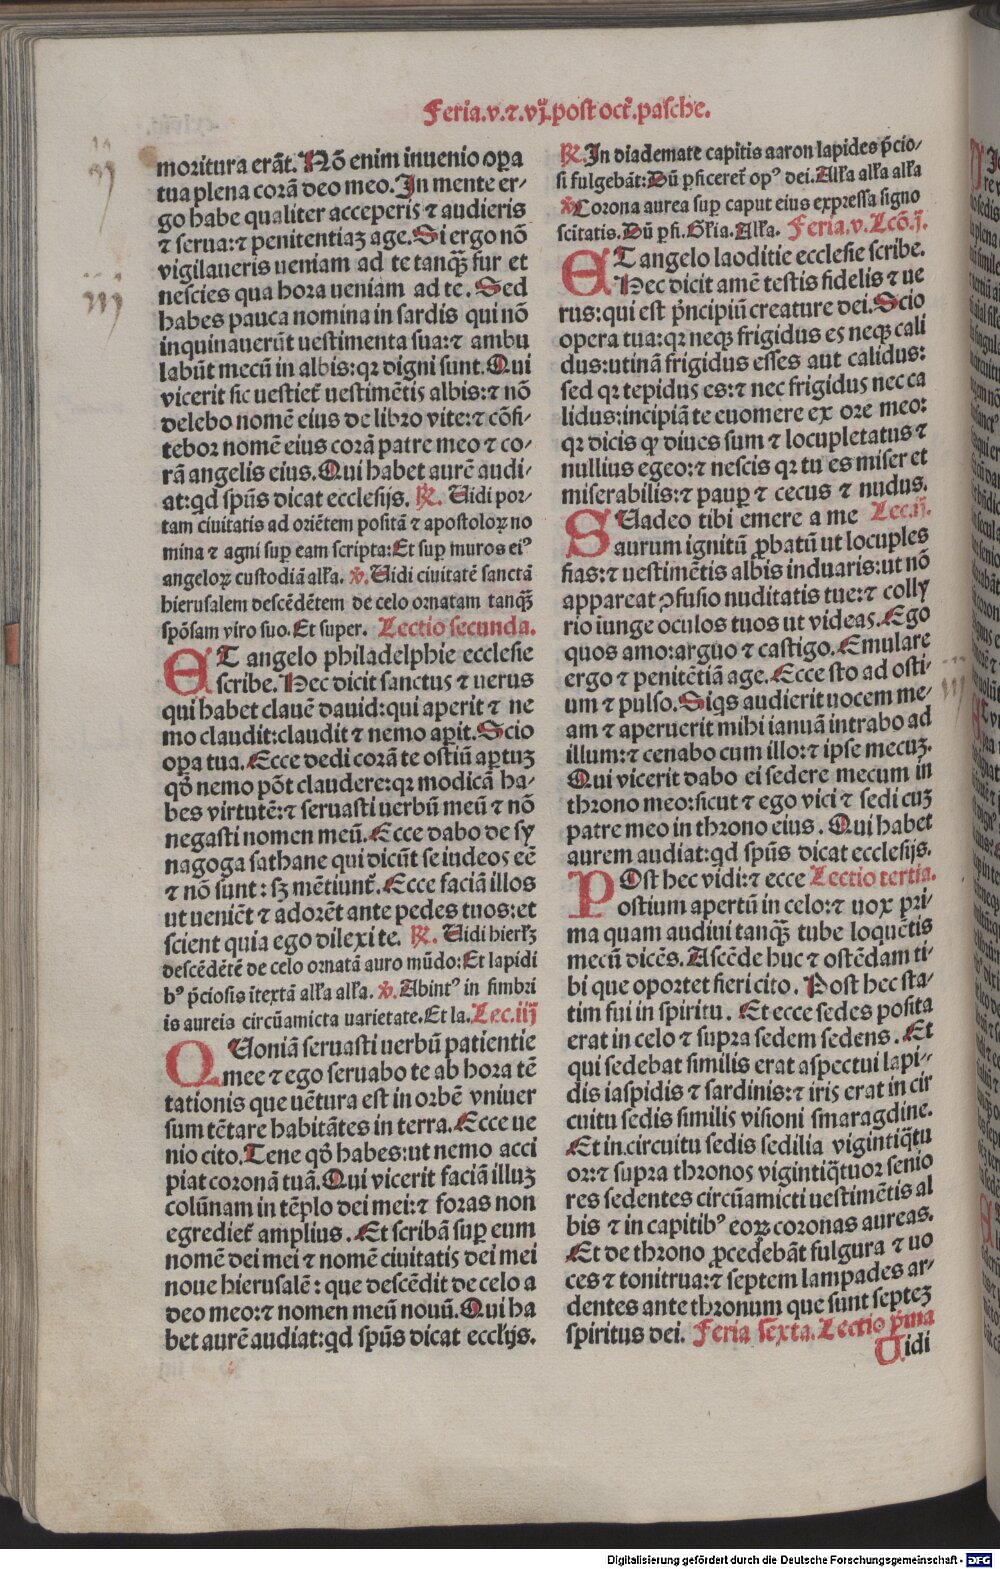 Feria.v.⁊.vj.post oct̄.pasche.
moritura erāt. Nō enim inuenio oꝑa
tua plena corā deo meo. In mente er-
go habe qualiter acceperis ⁊ audieris
⁊ serua:⁊ penitentiaꝫ age. Si ergo nō
vigilaueris ueniam ad te tanqꝫ fur et
nescies qua hora ueniam ad te. Sed
habes pauca nomina in sardis qui nō
inquinauerūt uestimenta sua:⁊ ambu
labūt mecū in albis:qꝛ digni sunt. Qui
vicerit sic uestiet̄ uestimētis albis:⁊ nō
delebo nomē eius de libro vite:⁊ cōfi-
tebor nomē eius corā patre meo ⁊ co-
rā angelis eius. Qui habet aurē audi-
at:qd spūs dicat ecclesijs. ℟. Uidi por-
tam ciuitatis ad oriētem positā ⁊ apostoloꝝ no
mina ⁊ agni suꝑ eam scripta:Et suꝑ muros eiꝰ
angeloꝝ custodiā alľa. ℣. Uidi ciuitatē sanctā
hierusalem descēdētem de celo ornatam tanqꝫ
spōsam viro suo. Et super. Lectio secunda.
ET angelo philadelphie ecclesie
scribe. Hec dicit sanctus ⁊ uerus
qui habet clauē dauid:qui aperit ⁊ ne
mo claudit:claudit ⁊ nemo aꝑit. Scio
oꝑa tua. Ecce dedi corā te ostiū aꝑtuꝫ
qd̄ nemo pōt claudere:qꝛ modicā ha-
bes virtutē:⁊ seruasti uerbū meū ⁊ nō
negasti nomen meū. Ecce dabo de sy
nagoga sathane qui dicūt se iudeos eē
⁊ nō sunt: sꝫ mētiunt̄. Ecce faciā illos
ut ueniēt ⁊ adorēt ante pedes tuos:et
scient quia ego dilexi te. ℟. Uidi hierľꝫ
descēdētē de celo ornatā auro mūdo:Et lapidi
bꝰ p̄ciosis ītextā alľa alľa. ℣. Abintꝰ in fimbri
is aureis circūamicta uarietate. Et la. Lec.iij
QUoniā seruasti uerbū patientie
mee ⁊ ego seruabo te ab hora tē
tationis que uētura est in orbē vniuer
sum tētare habitātes in terra. Ecce ue
nio cito. Tene qd̄ habes:ut nemo acci
piat coronā tuā. Qui vicerit faciā illuꝫ
colūnam in tēplo dei mei:⁊ foras non
egrediet̄ amplius. Et scribā suꝑ eum
nomē dei mei ⁊ nomē ciuitatis dei mei
noue hierusalē: que descēdit de celo a
deo meo:⁊ nomen meū nouū. Qui ha
bet aurē audiat:qd spūs dicat eccľijs.
℟. In diademate capitis aaron lapides p̄cio-
si fulgebāt:Dū ꝑficeret̄ opꝰ dei. Alľa alľa alľa
℣ Corona aurea suꝑ caput eius expressa signo
scitatis. Dū ꝑfi. Gľia. Alľa. Feria.v. Lcō.j.
ET angelo laoditie ecclesie scribe.
Hec dicit amē testis fidelis ⁊ ue
rus:qui est p̄ncipiū creature dei. Scio
opera tua:qꝛ neqꝫ frigidus es neqꝫ cali
dus:utinā frigidus esses aut calidus:
sed qꝛ tepidus es:⁊ nec frigidus nec ca
lidus:incipiā te euomere ex ore meo:
qꝛ dicis qꝙ diues sum ⁊ locupletatus ⁊
nullius egeo:⁊ nescis qꝛ tu es miser et
miserabilis:⁊ pauꝑ ⁊ cecus ⁊ nudus.
SUadeo tibi emere a me Lec.ij.
aurum ignitū ꝓbatū ut locuples
fias:⁊ uestimētis albis induaris:ut nō
appareat ꝯfusio nuditatis tue:⁊ colly
rio iunge oculos tuos ut videas. Ego
quos amo:arguo ⁊ castigo. Emulare
ergo ⁊ penitētiā age. Ecce sto ad osti-
um ⁊ pulso. Siqs audierit uocem me-
am ⁊ aperuerit mihi ianuā intrabo ad
illum:⁊ cenabo cum illo:⁊ ipse mecuꝫ.
Qui vicerit dabo ei sedere mecum in
throno meo:sicut ⁊ ego vici ⁊ sedi cuꝫ
patre meo in throno eius. Qui habet
aurem audiat:qd spūs dicat ecclesijs.
POst hec vidi:⁊ ecce Lectio tertia.
ostium apertū in celo:⁊ uox pri
ma quam audiui tanqꝫ tube loquētis
mecū dicēs. Ascēde huc ⁊ ostēdam ti-
bi que oportet fieri cito. Post hec sta-
tim fui in spiritu. Et ecce sedes posita
erat in celo ⁊ supra sedem sedens. Et
qui sedebat similis erat aspectui lapi-
dis iaspidis ⁊ sardinis:⁊ iris erat in cir
cuitu sedis similis visioni smaragdine.
Et in.circuitu sedis sedilia vigintiq̄tu
or:⁊ supra thronos vigintiq̄tuor senio
res sedentes circūamicti uestimētis al
bis ⁊ in capitibꝰ eoꝝ coronas aureas.
Et de throno ꝓcedebāt fulgura ⁊ uo
ces ⁊ tonitrua:⁊ septem lampades ar-
dentes ante thronum que sunt septeꝫ
spiritus dei. Feria sexta. Lectio p̄ma
Uidi
Digitalisierung gefördert durch die Deutsche Forschungsgemeinschaft - DFG